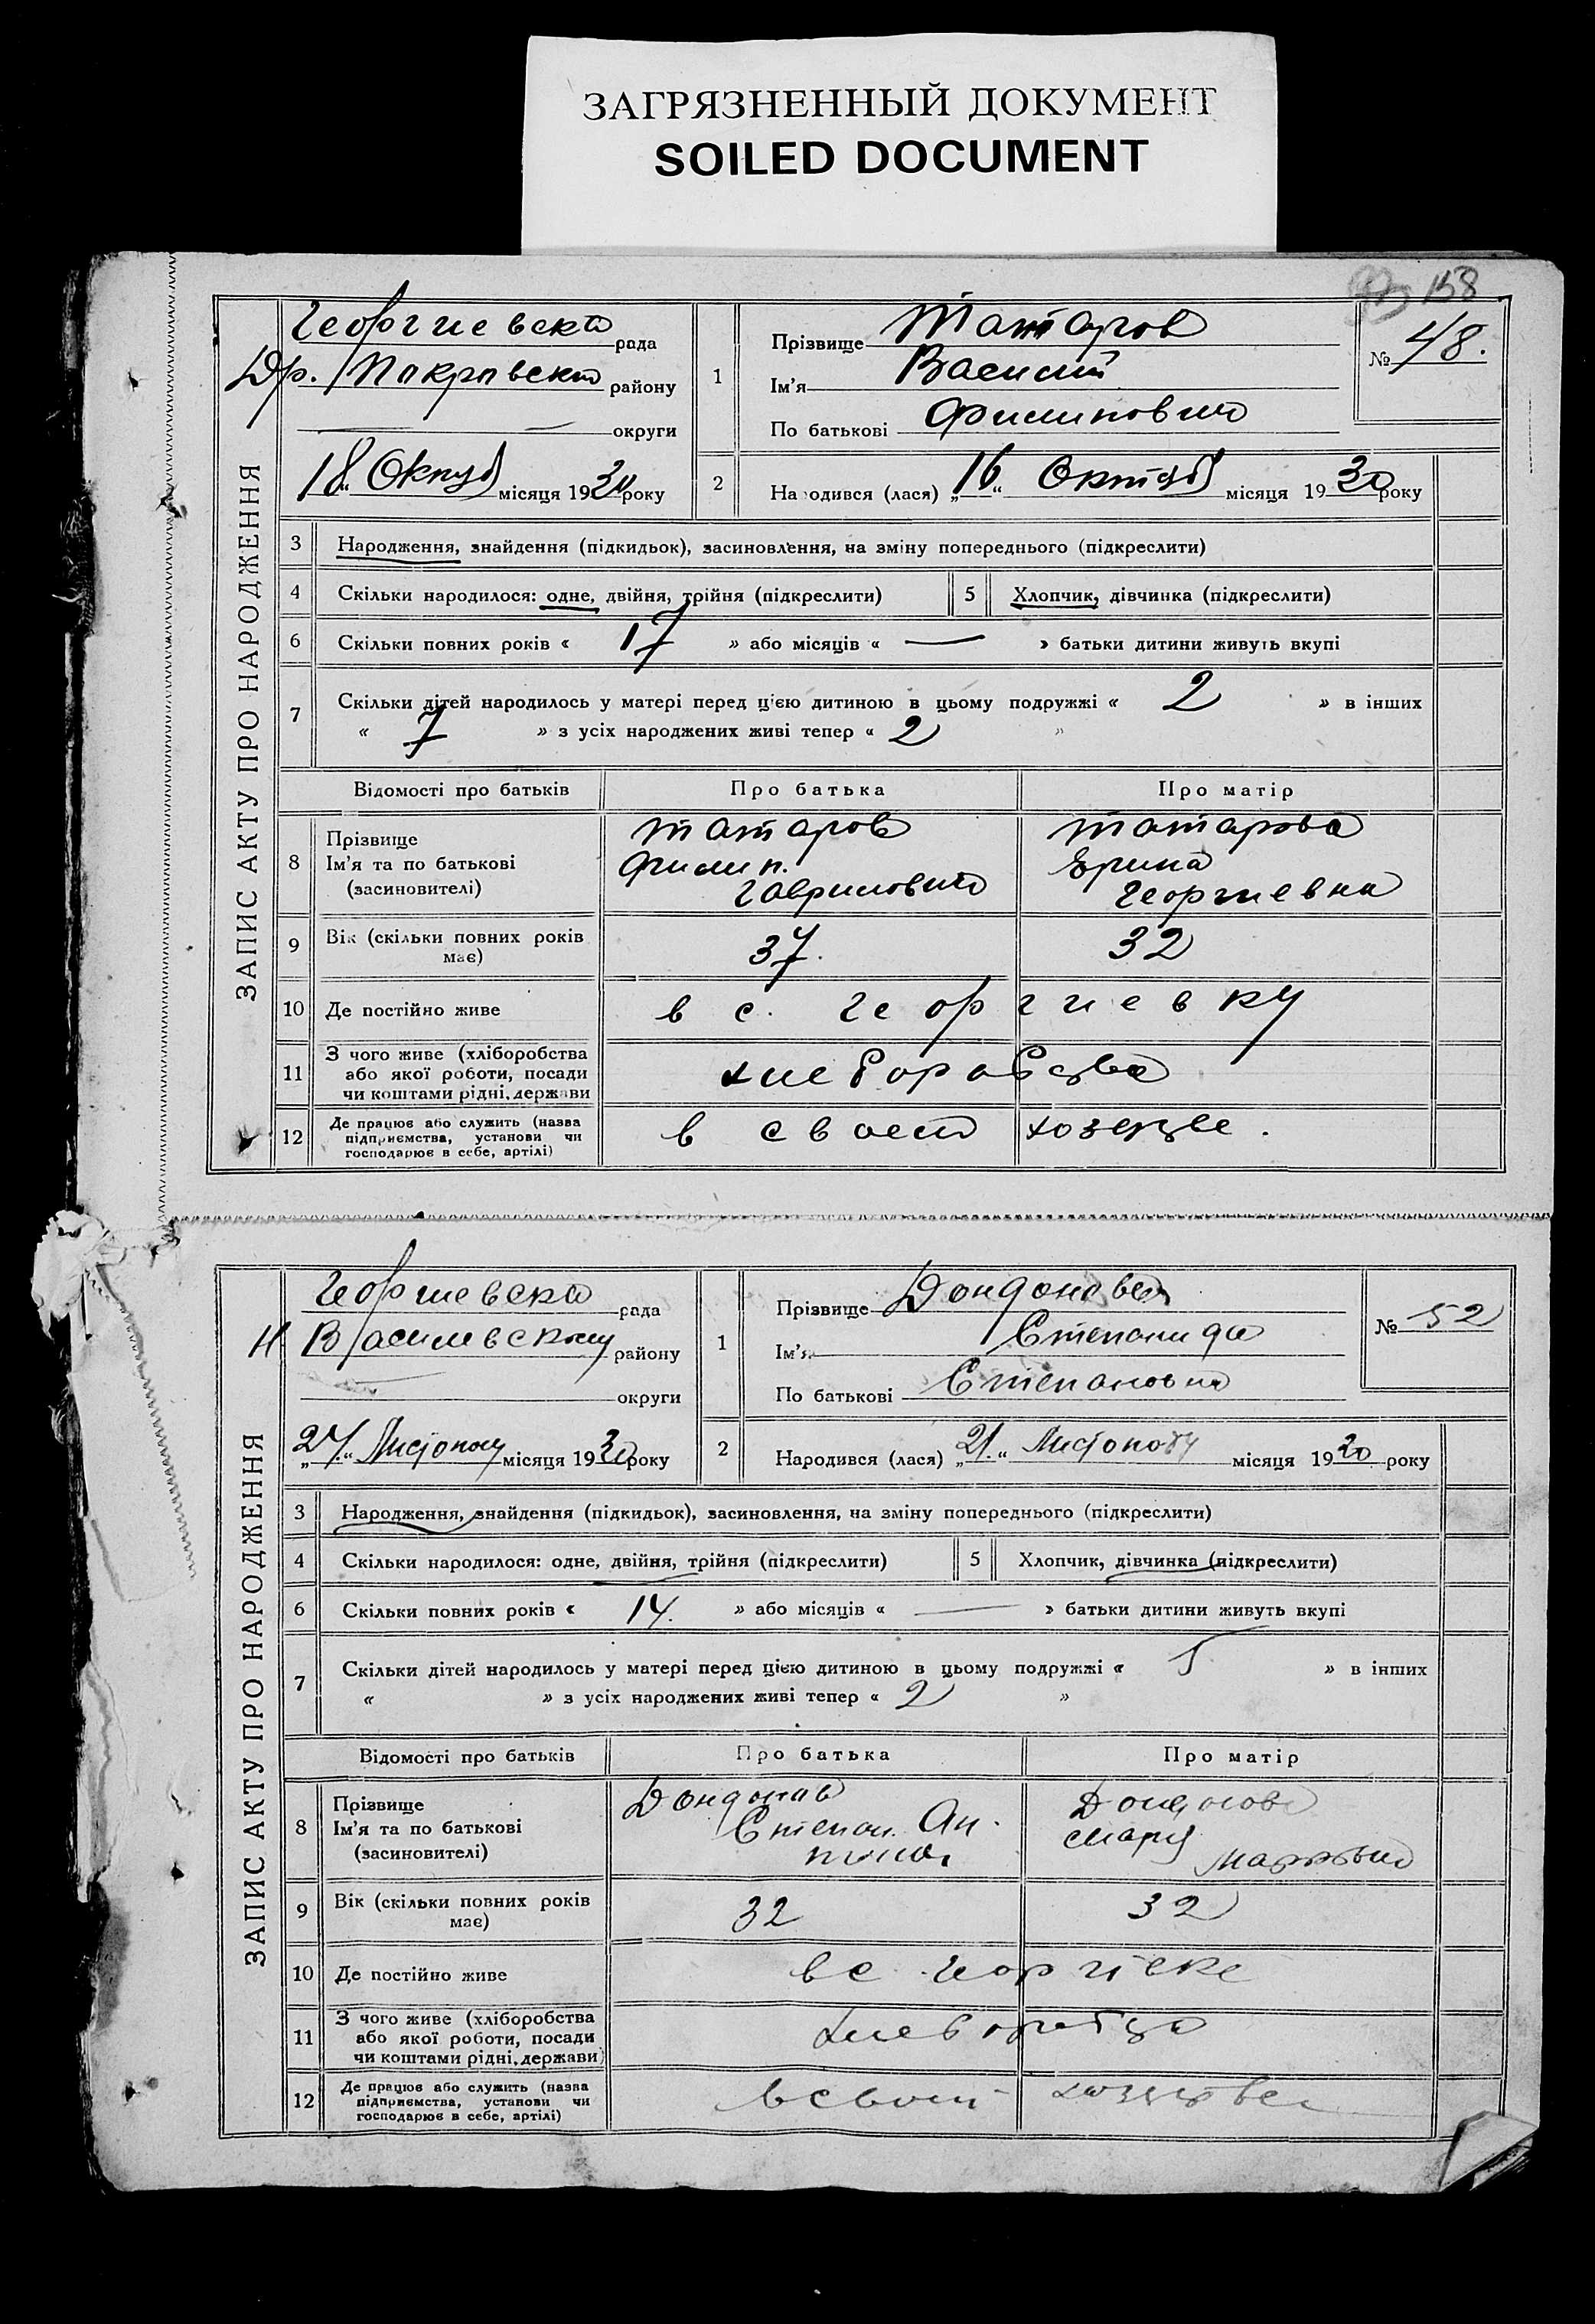 ЗАГРЯЗНЕННЫЙ ДОКУМЕНТ
SOILED DOCUMENT
158
ЗАПИС АКТУ ПРО НАРОДЖЕННЯ
Георгиевска рада
Покровско району
округи
18 „ “ Октяб місяця 1930 року
1
Прізвище Татаров
Ім'я Василий
По батькові Филипович
№ 48.
2
Народився (лася) „16“ Октяб місяця 1930 року
3 Народження, знайдення (підкидьок), засиновлення, на зміну попереднього (підкреслити)
4 Скільки народилося: одне, двійня, трійня (підкреслити) 5 Хлопчик, дівчинка (підкреслити)
6 Скільки повних років « 17 » або місяців « — » батьки дитини живуть вкупі
7 Скільки дітей народилось у матері перед цією дитиною в цьому подружжі « 2 » в інших
« 7 » з усіх народжених живі тепер « 2 »
Відомості про батьків Про батька Про матір
8 Прізвище Татаров Татарова
Ім'я та по батькові Филип. Ерина
(засиновителі) Гаврилович Георгиевна
9 Вік (скільки повних років має) 37. 32
10 Де постійно живе в с. Георгиевку
11 З чого живе (хліборобства
або якої роботи, посади
чи коштами рідні, держави
12 Де працює або служить (назва
підприємства, установи чи
господарює в себе, артілі)
в своем
ЗАПИС АКТУ ПРО НАРОДЖЕННЯ
Георгиевска рада
Н Василевскому району
округи
„24.“ Листопоту місяця 1930 року
1
Прізвище Дондонова
Ім'я Степанида
По батькові Степановна
№ 52
2
Народився (лася) „21.“ Листопоту місяця 1930 року
3 Народження, знайдення (підкидьок), засиновлення, на зміну попереднього (підкреслити)
4 Скільки народилося: одне, двійня, трійня (підкреслити) 5 Хлопчик, дівчинка (підкреслити)
6 Скільки повних років « 14. » або місяців « — » батьки дитини живуть вкупі
7 Скільки дітей народилось у матері перед цією дитиною в цьому подружжі « 5 » в інших
« » з усіх народжених живі тепер « 2 »
Відомості про батьків Про батька Про матір
8 Прізвище Дондонов Дондонова
Ім'я та по батькові Степан Мария
(засиновителі)
9 Вік (скільки повних років має) 32 32
10 Де постійно живе
11 З чого живе (хліборобства
або якої роботи, посади
чи коштами рідні, держави)
12 Де працює або служить (назва
підприємства, установи чи
господарює в себе, артілі)